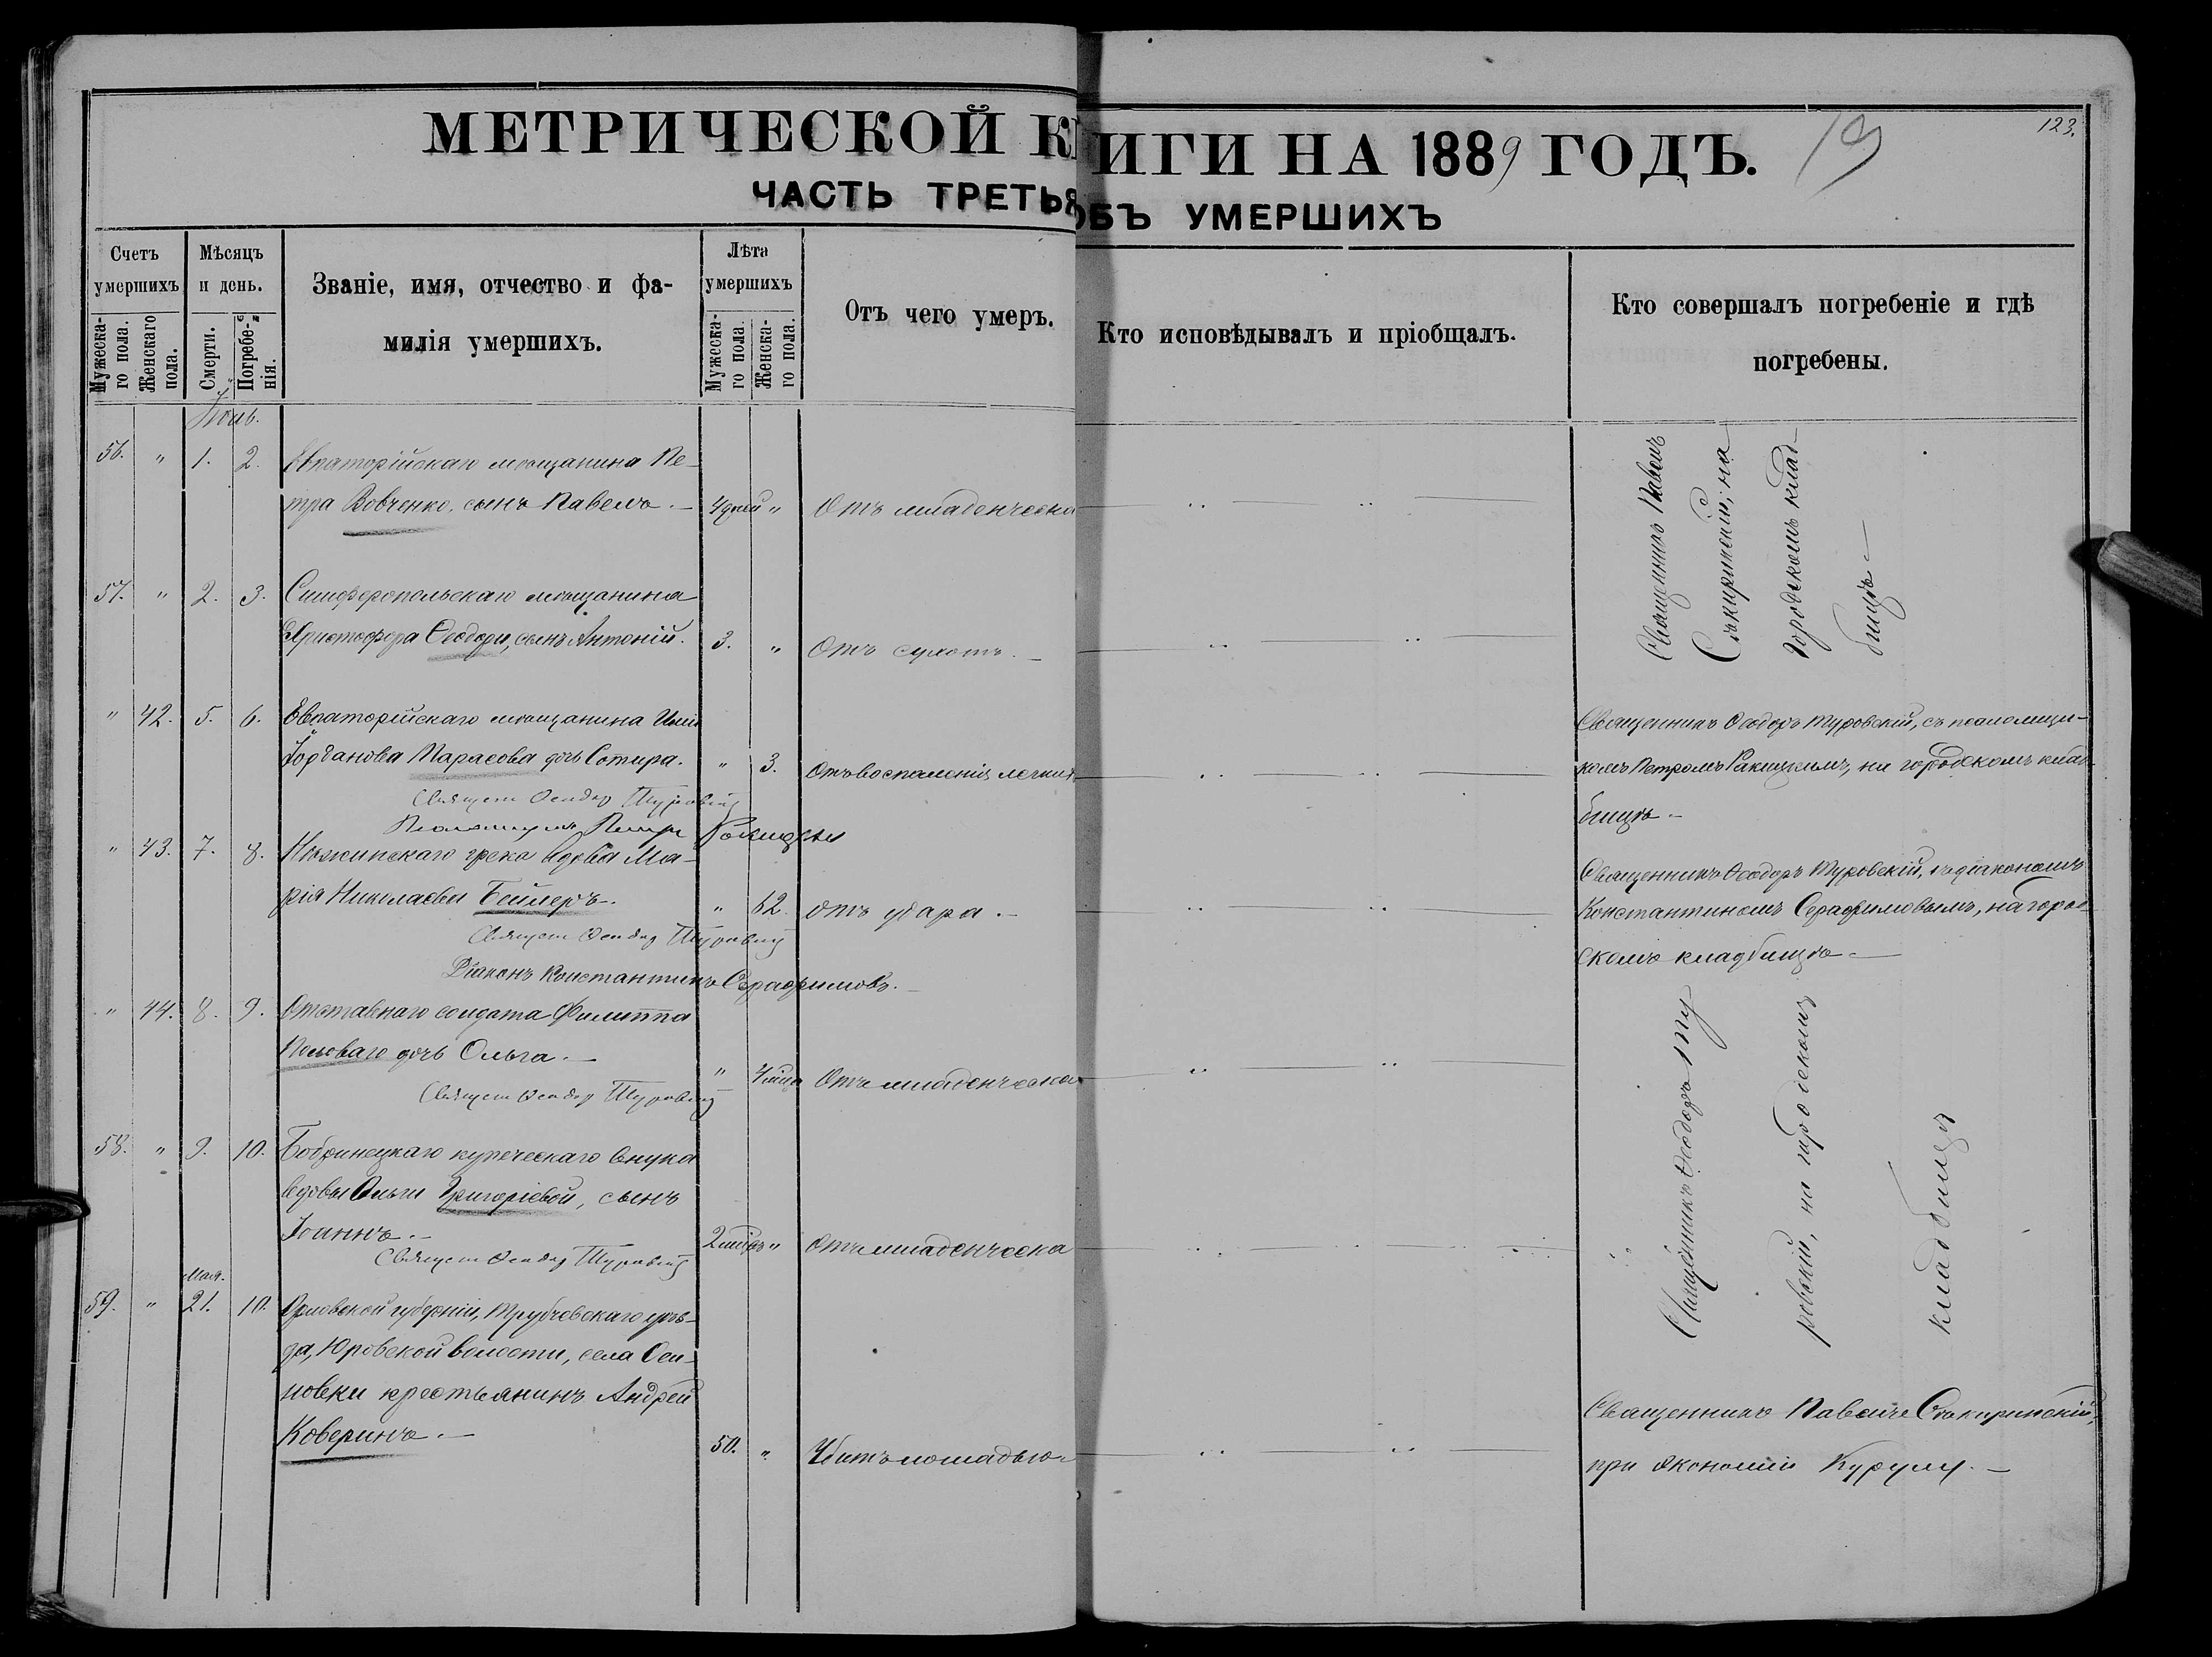 МЕТРИЧЕСКОЙ КНИГИ НА 1889 ГОДЪ. 19
123.
ЧАСТЬ ТРЕТЬЯ ОБЪ УМЕРШИХЪ
Счетъ умершихъ
Мужеска-го пола.
Женскаго пола.
Мѣсяцъ и день.
Смерти.
Погребе-нія.
Званіе, имя, отчество и фа-
милія умершихъ.
Лѣта умершихъ
Мужеска-го пола.
Женска-го пола.
Отъ чего умеръ.
Кто исповѣдывалъ и пріобщалъ.
Кто совершалъ погребеніе и гдѣ
погребены.
56. " 1. 2. Евпаторійскаго мѣщанина Пе-
тра Вовченко, сынъ Павелъ. — 4 дней " Отъ младенческа
Священникъ Павелъ
Стакиринскій; на
городскомъ клад-
бищѣ. —
57. " 2. 3. Симферопольскаго мѣщанина
Христофора Ѳеодори, сынъ Антоній. 3. " Отъ сухотъ. —
" 42. 5. 6. Евпаторійскаго мѣщанина Иліи
Іорданова Парасова дочь Сотира. " 3. Отъ воспаленія легкихъ
Священ Ѳеодор Туровскій
Псаломщикъ Петръ Ракицкій
Священникъ Ѳеодоръ Туровскій, съ псаломщи-
комъ Петромъ Ракицкимъ, на городскомъ клад-
бищѣ. —
" 43. 7. 8. Нѣжинскаго грека вдова Ма-
рія Николаева Бейлеръ. " 62. отъ удара. —
Священ Ѳеодор Туровскій
Діаконъ Константинъ Серафимовъ. —
Священникъ Ѳеодоръ Туровскій, съ діакономъ
Константиномъ Серафимовымъ, на город-
скомъ кладбищѣ. —
" 44. 8. 9. Отставнаго солдата Филиппа
Полеваго дочь Ольга. — " 4 мѣсц Отъ младенческа
Священ Ѳеодор Туровскій
Священникъ Ѳеодоръ Ту
ровскій, на городскомъ
кладбищѣ
58. " 9. 10. Бобринецкаго купеческаго внука
вдовы Ольги Григоріевой, сынъ
Іоаннъ. — 2 " Отъ младенческа
Священ Ѳеодор Туровскій
Мая.
59. " 21. 10. Орловской губерніи, Трубчевскаго уѣз-
да, Юровской волости, села Оси-
новки крестьянинъ Андрей
Коверинъ. — 50. " Убитъ лошадью
Священникъ Павелъ Стакиринскій,
при экономіи Курулу. —